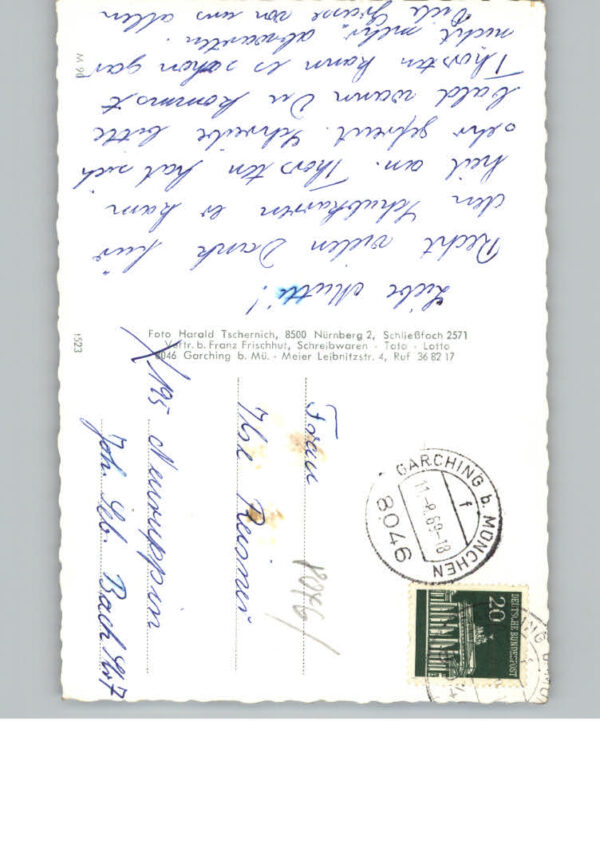 Liebe Mutti!
Recht vielen Dank für
den Schubkarren er kam
heil an. Thorsten hat sich
sehr gefreut. Schreibe bitte
bald wann Du kommst
Thorsten kann es schon gar
nicht mehr abwarten.
Viele Grüsse von uns allen
M 9d
1523
Foto Harald Tschernich, 8500 Nürnberg 2, Schließfach 2571
Vertr. b. Franz Frischhut, Schreibwaren - Toto - Lotto
8046 Garching b. Mü. - Meier Leibnitzstr. 4, Ruf 36 82 17
Frau
Ilse
X/195 Neuruppin
Joh. Seb. Bach Str 7
GARCHING b. MÜNCHEN
f
8046
20
DEUTSCHE BUNDESPOST